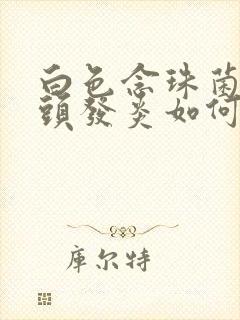 白色念珠菌
頭發炎如何
庫尔特